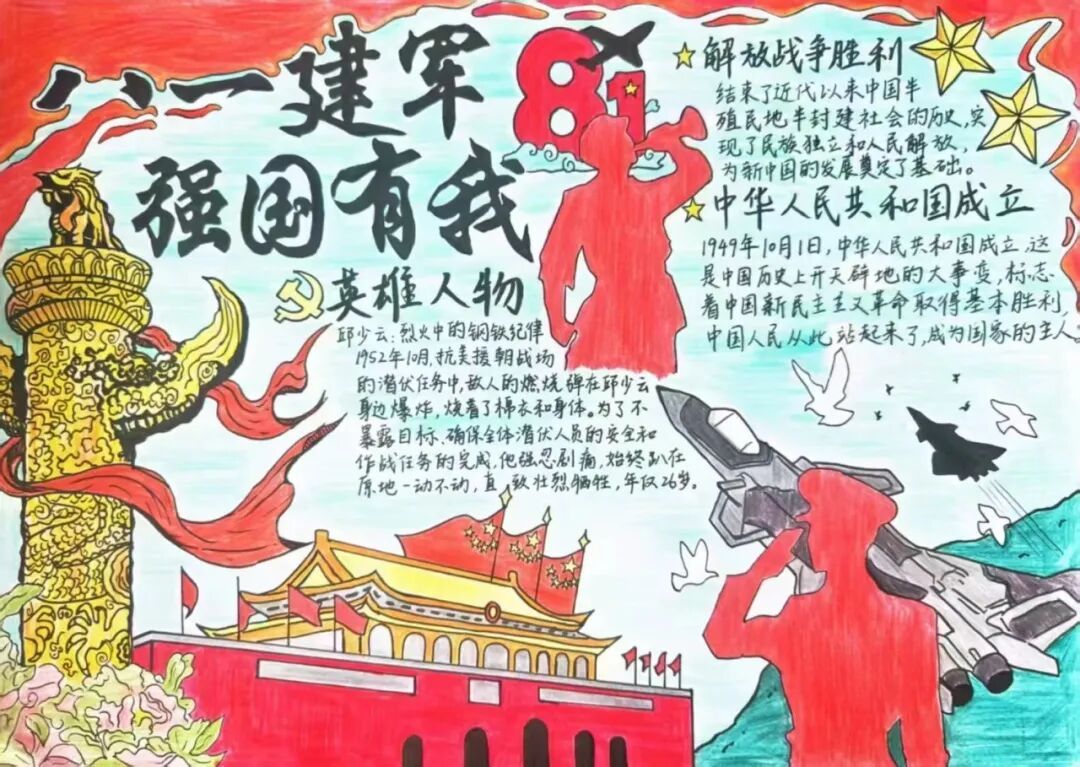 八一建军
强国有我
81
英雄人物
邱少云:烈火中的钢铁纪律
1952年10月,抗美援朝战场
的潜伏任务中,敌人的燃烧弹在邱少云
身边爆炸,烧着了棉衣和身体。为了不
暴露目标、确保全体潜伏人员的安全和
作战任务的完成,他强忍剧痛,始终趴在
原地一动不动,直致壮烈牺牲,年仅26岁。
解放战争胜利
结束了近代以来中国半
殖民地半封建社会的历史,实
现了民族独立和人民解放,
为新中国的发展奠定了基础。
中华人民共和国成立
1949年10月1日,中华人民共和国成立,这
是中国历史上开天辟地的大事变,标志
着中国新民主主义革命取得基本胜利,
中国人民从此站起来了,成为国家的主人。